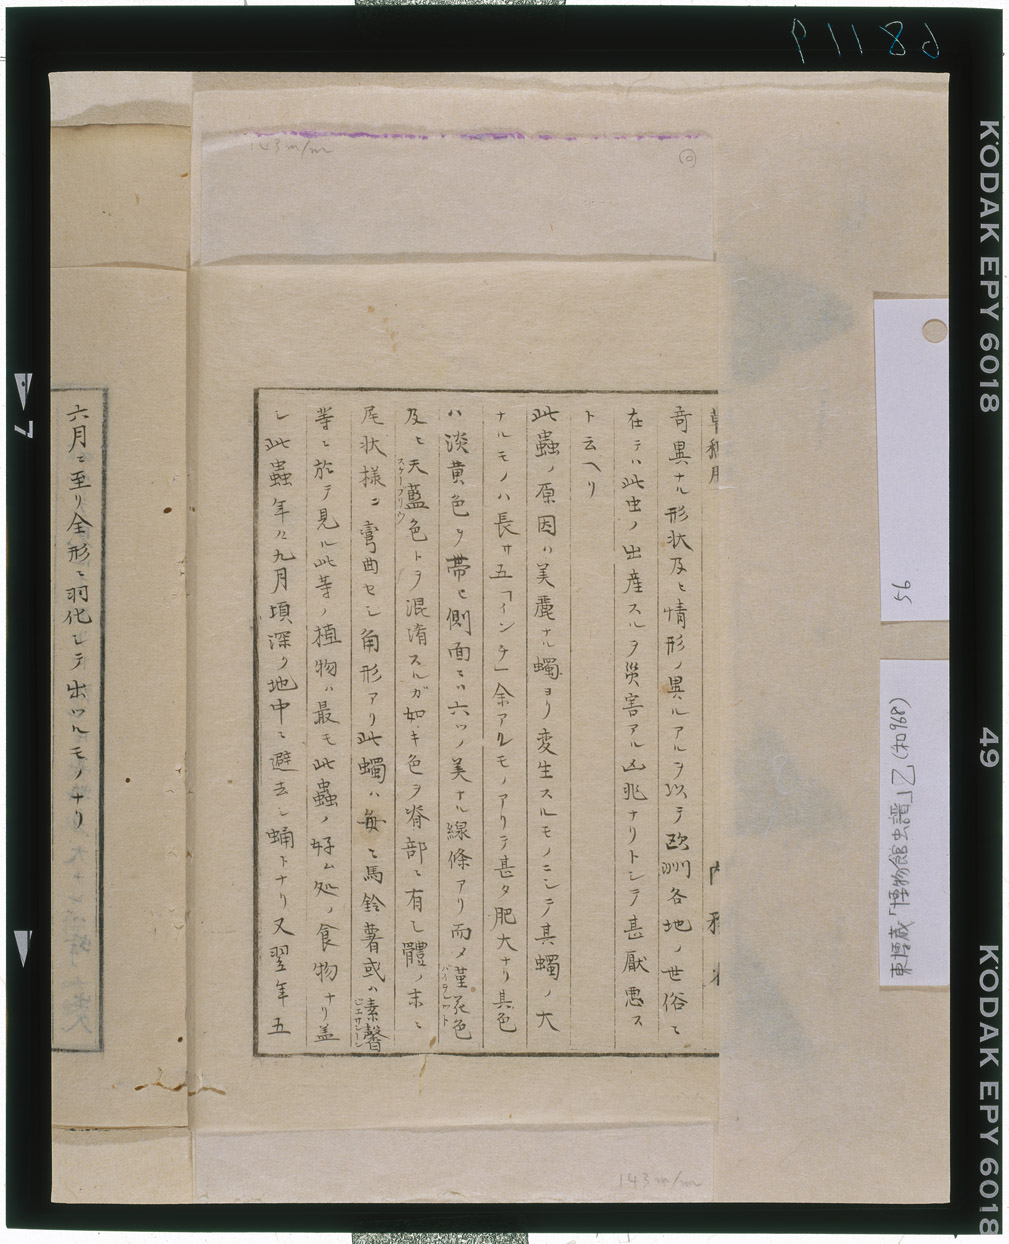 奇異ナル形状及ヒ情形ノ異ルアルヲ以テ欧洲各地ノ世俗ニ
在テハ此虫ノ出産スルヲ災害アル凶兆ナリトシテ甚厭悪ス
ト云ヘリ
此蟲ノ原因ハ美麗ナル蠋ヨリ変生スルモノニシテ其蠋ノ大
ナルモノハ長サ五「インチ」余アルモノアリテ甚タ肥大ナリ其色
ハ淡黄色ヲ帯ヒ側面ニハ六ツノ美ナル線條アリ而メ菫花色
バイヲレット
及ヒ天藍色トヲ混淆スルガ如キ色ヲ脊部ニ有シ體ノ末ニ
スケーブリウ
尾状様ニ彎曲セシ角形アリ此蠋ハ毎ニ馬鈴薯或ハ素馨
ヂエサミーン
等ニ於テ見ル此等ノ植物ハ最モ此蟲ノ好ム処ノ食物ナリ盖
シ此蟲年々九月頃深ク地中ニ避去シ蛹トナリ又翌年五
六月ニ至リ全形ニ羽化シテ出ツルモノナリ
143 m/m
143 m/m
56
東博蔵「博物館虫譜」乙(和968)
91186
KODAK EPY 6018
49
KODAK EPY 6018
7